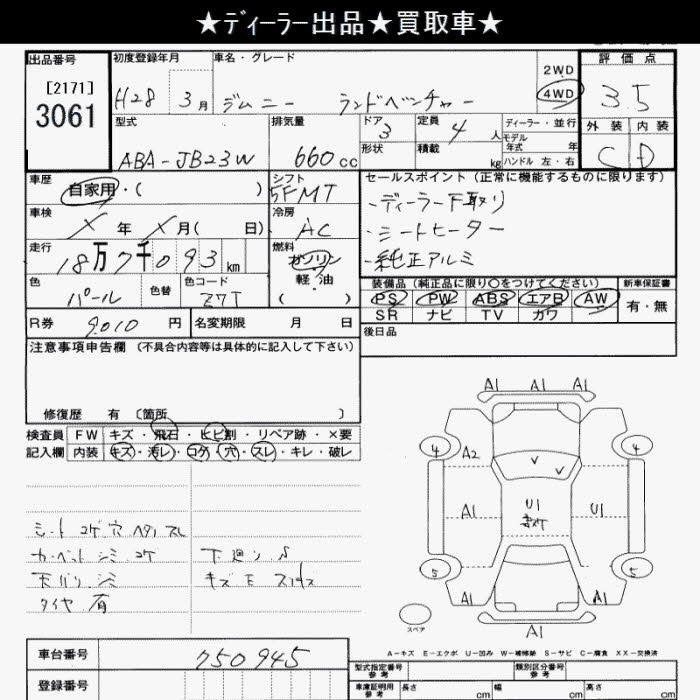 ★ディーラー出品★買取車★
出品番号 初度登録年月 車名・グレード 2WD 評価点
[2171] H28 3月 ジムニー ランドベンチャー 4WD 3.5
3061 型式 排気量 ドア 定員 ディーラー・並行 外装 内装
ABA-JB23W 660cc 3 4人 モデル年式 年 C D
形状 積載 kg ハンドル 左・右
車歴 シフト セールスポイント(正常に機能するものに限ります)
自家用・( ) 5FMT ・ディーラー下取り
車検 冷房 ・シートヒーター
X年X月( 日) AC ・純正アルミ
走行 燃料
18万7千093km ガソリン
色 色替 色コード 軽・油 装備品(純正品に限り○をつけてください) 新車保証書
パール Z7T PS PW ABS エアB AW 有・無
SR ナビ TV カワ
R券 9010円 名変期限 月 日 後日品
注意事項申告欄(不具合内容等は具体的に記入して下さい)
修復歴 有 〔箇所 〕
検査員 FW キズ・飛石・ヒビ割・リペア跡・×要
記入欄 内装 キズ・汚レ・コゲ・穴・スレ・キレ・破レ
シート コゲ 穴 ヘタリ スレ
カーペット シミ コゲ 下廻り S
天バリ シミ
タイヤ 有
A1 A1 A1
4 A2 4
A1 U1 U1
5 5
A1 A1
A1
スペア
A-キズ E-エクボ U-凹み W-補修跡 S-サビ C-腐食 XX-交換済
車台番号 750945
登録番号
型式指定番号 参考 類別区分番号 参考
車庫証明用 参考 長さ cm 幅 cm 高さ cm